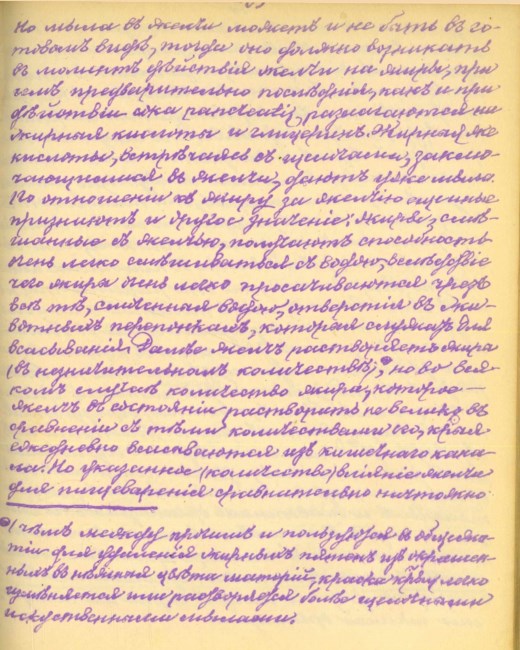 Но мыла въ желчи можетъ и не быть въ го-
товомъ видѣ, тогда оно должно возникать
въ моментъ дѣйствія желчи на жиры, при
чемъ предварительно послѣдніе, какъ и при
дѣйствіи сока pancreatis, разлагаются на
жирныя кислоты и глицеринъ. Жирныя же
кислоты, встрѣчаясь съ щелочами, заклю-
чающимися въ желчи, даютъ уже мыло.
По отношенію къ жиру за желчью
признаютъ и другое значеніе: жиры, смѣ-
шанные съ желчью, получаютъ способность
очень легко смѣшиваться съ водою, вслѣдствіе
чего жиры очень легко просачиваются чрезъ
всѣ тѣ, смоченныя водою, отверстія въ жи-
вотныхъ перепонкахъ, которыя служатъ для
всасыванія. Далѣе желчь растворяетъ жиры
(въ незначительномъ количествѣ); но во вся-
комъ случаѣ количество жира, которое
желчь въ состояніи растворить не велико въ
сравненіи съ тѣми количествами его, крыя
ежедневно всасываются изъ кишечнаго кана-
ла. Но указанное (количество) вліяніе желчи
для пищеваренія сравнительно ничтожно.
чѣмъ между прочимъ и пользуются въ общежи-
тіи для удаленія жирныхъ пятенъ изъ окрашен-
ныхъ въ нѣжныя цвѣта матерій, краска легко
измѣняется или растворяется болѣе щелочными
искусственными мылами.